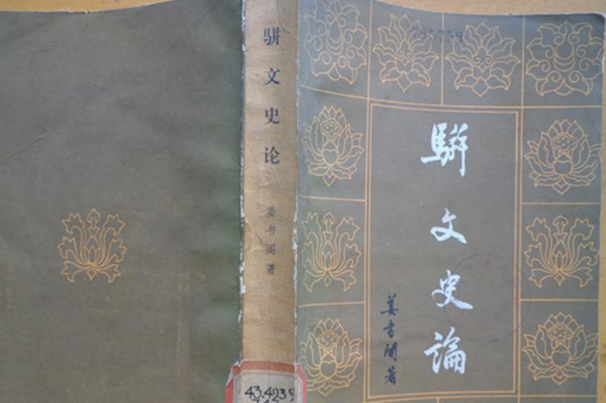 骈文史论
姜书阁著
43.4239
駢文史論
姜書閣著